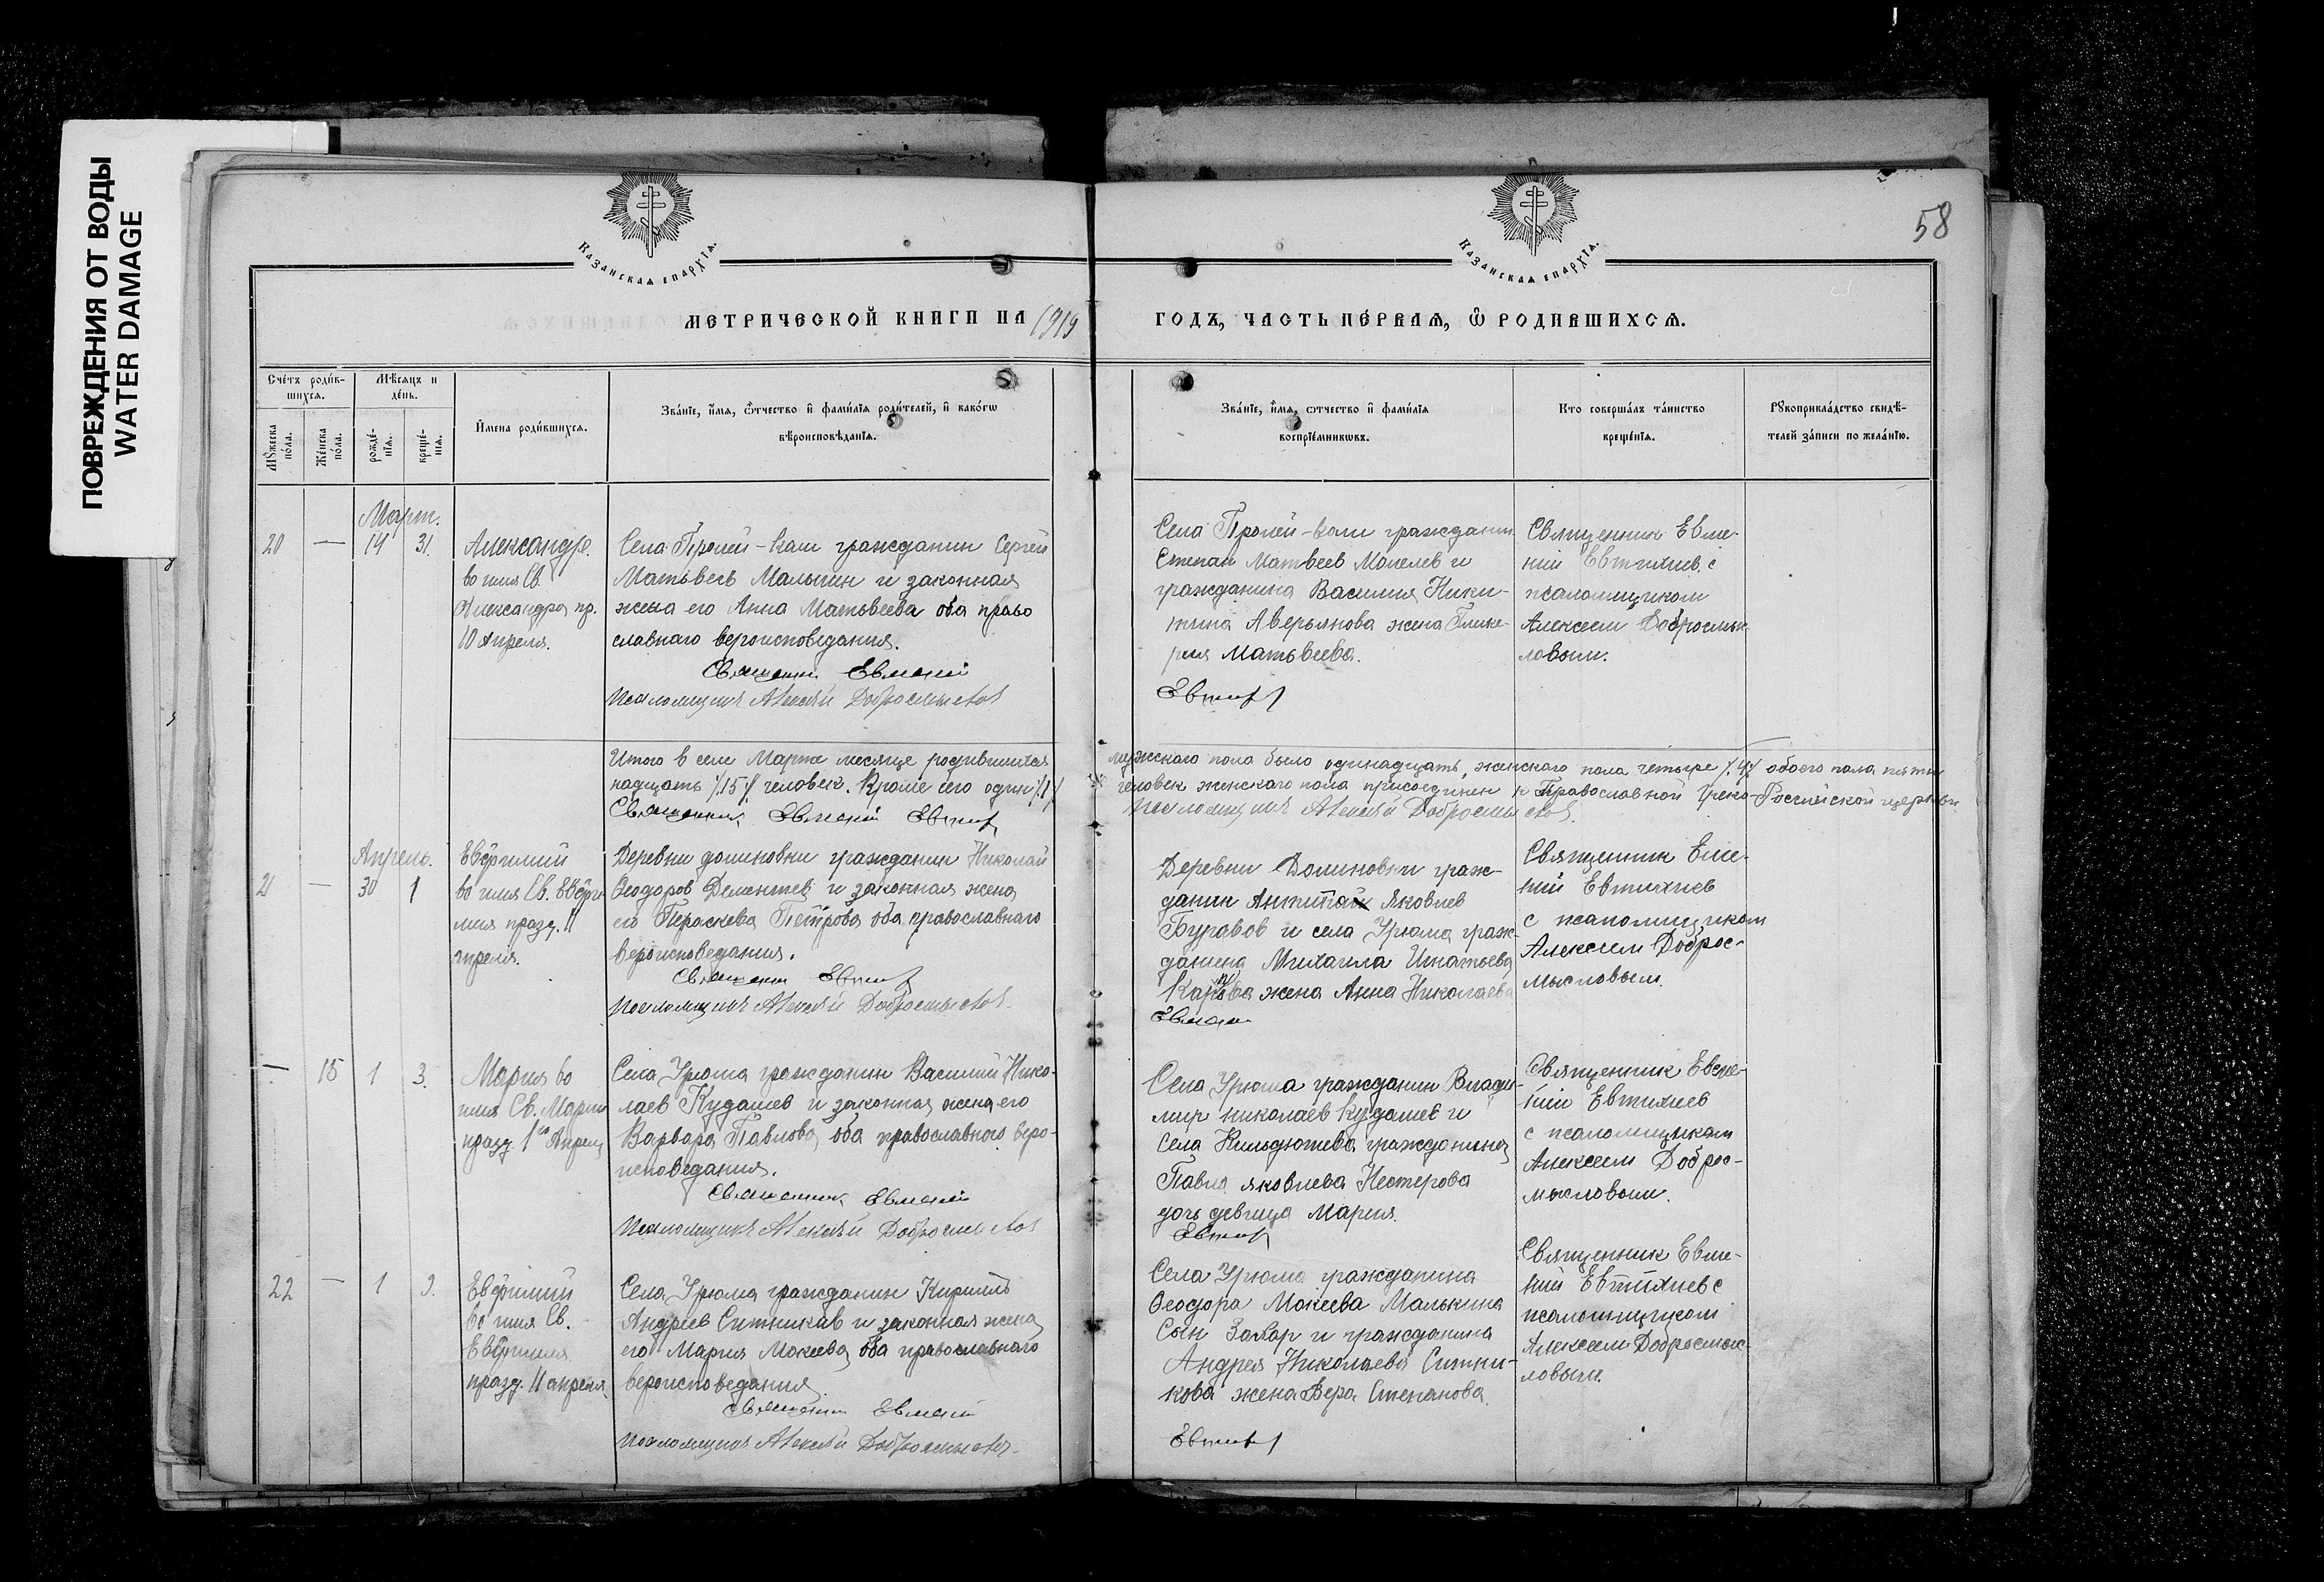 ПОВРЕЖДЕНИЯ ОТ ВОДЫ
WATER DAMAGE
58
Казанская епархїѧ.
Казанская епархїѧ.
МЕТРИЧЕСКОЙ КНИГИ НА 1919
ГОДЪ, ЧАСТЬ ПЕ́РВАѦ, Ѿ РОДИВШИХСѦ.
Сче́тъ роди́в-
шихсѧ.
Мѣ́сѧцъ и
де́нь.
Мꙋ́жеска
по́ла.
Же́нска
по́ла.
рожде́-
нїѧ.
креще́-
нїѧ.
И҆мена роди́вшихсѧ.
Зва́нїе, и҆́мѧ, ѻ҆́тчество и҆ фами́лїѧ роди́телей, и҆ како́гѡ
вѣроисповѣ́данїѧ.
Зва́нїе, и҆́мѧ, ѻ҆́тчество и҆ фами́лїѧ
воспрїе́мникѡвъ.
Кто соверша́лъ та́инство
креще́нїѧ.
Рꙋкоприкла́дство свидѣ́-
телей за́писи по жела́нїю.
Март.
20 — 14 31.
Александр.
во имя Св.
Александра пр.
10 Апреля.
Села Пролей-Каши гражданин Сергей
Матьвеев Малыгин и законная
жена его Анна Матьвеева оба право
славнаго вероисповедания.
Священник Евмений
Псаломщикъ Алексѣй Добросмыслов
Села Пролей-Каши гражданин
Степан Матвеев и
гражданина Василия Ники-
тина Аверьянова жена Глике-
рия Матьвеева.
Евтих
Священник Евме-
ний Евтихиев с
псаломщиком
Алексеем Добросмыс-
ловым.
Итого в сем Марте месяце родившихся мужскаго пола было одинадцать, женскаго пола четыре /.4/ обоего пола пятн
надцать /.15/. человек. Кроме сего один /.1/ человек женскаго пола присоединен к Православной Греко-Российской церкви
Священник Евмений Евтих Псаломщикъ Алексѣй Добросмыслов.
Апрель.
21 — 30 1
Евфимий
во имя Св. Евфи
мия празд. 11
апреля.
Деревни долиновки гражданин Николай
Феодоров Дементьев и законная жена
его Параскева Петрова оба православнаго
вероисповедания.
Священник Евтих
Псаломщикъ Алексѣй Добросмыслов
Деревни Долиновки граж-
данин Яковлев
Буравов и села Урюма граж-
данина Михаила Игнатьева
жена Анна Николаева
Евмени
Священник Евме-
ний Евтихиев
с псаломщиком
Алексеем Доброс-
мысловым.
— 15 1 3.
Мария во
имя Св. Марии
празд. 1го Апреля
Села Урюма гражданин Василий Нико-
лаев Кудашев и законная жена его
Варвара Павлова оба православного веро-
исповедания.
Священник Евмений
Псаломщикъ Алексѣй Добросмыслов
Села Урюма гражданин Влади-
мир николаев Кудашев и
Села Кильдюшева гражданина
Павла яковлева Нестерова
дочь девица Мария.
Евтих
Священник Евме-
ний Евтихиев
с псаломщикам
Алексеем Доброс-
мысловым.
22 — 1 9.
Евфимий
во имя Св.
Евфимия
празд. 11 апреля.
Села Урюма гражданин Кирилл
Андреев Ситников и законная жена
его Мария Мокеева оба православнаго
вероисповедания
Священник Евмений
Псаломщикъ Алексѣй Добросмыслов
Села Урюма гражданина
Феодора Мокеева Малькина
Сын Захар и гражданина
Андрея Николаева Ситни-
кова жена Вера Степанова.
Евтих
Священник Евме-
ний Евтихиев с
псаломщиком
Алексеем Добросмыс-
ловым.